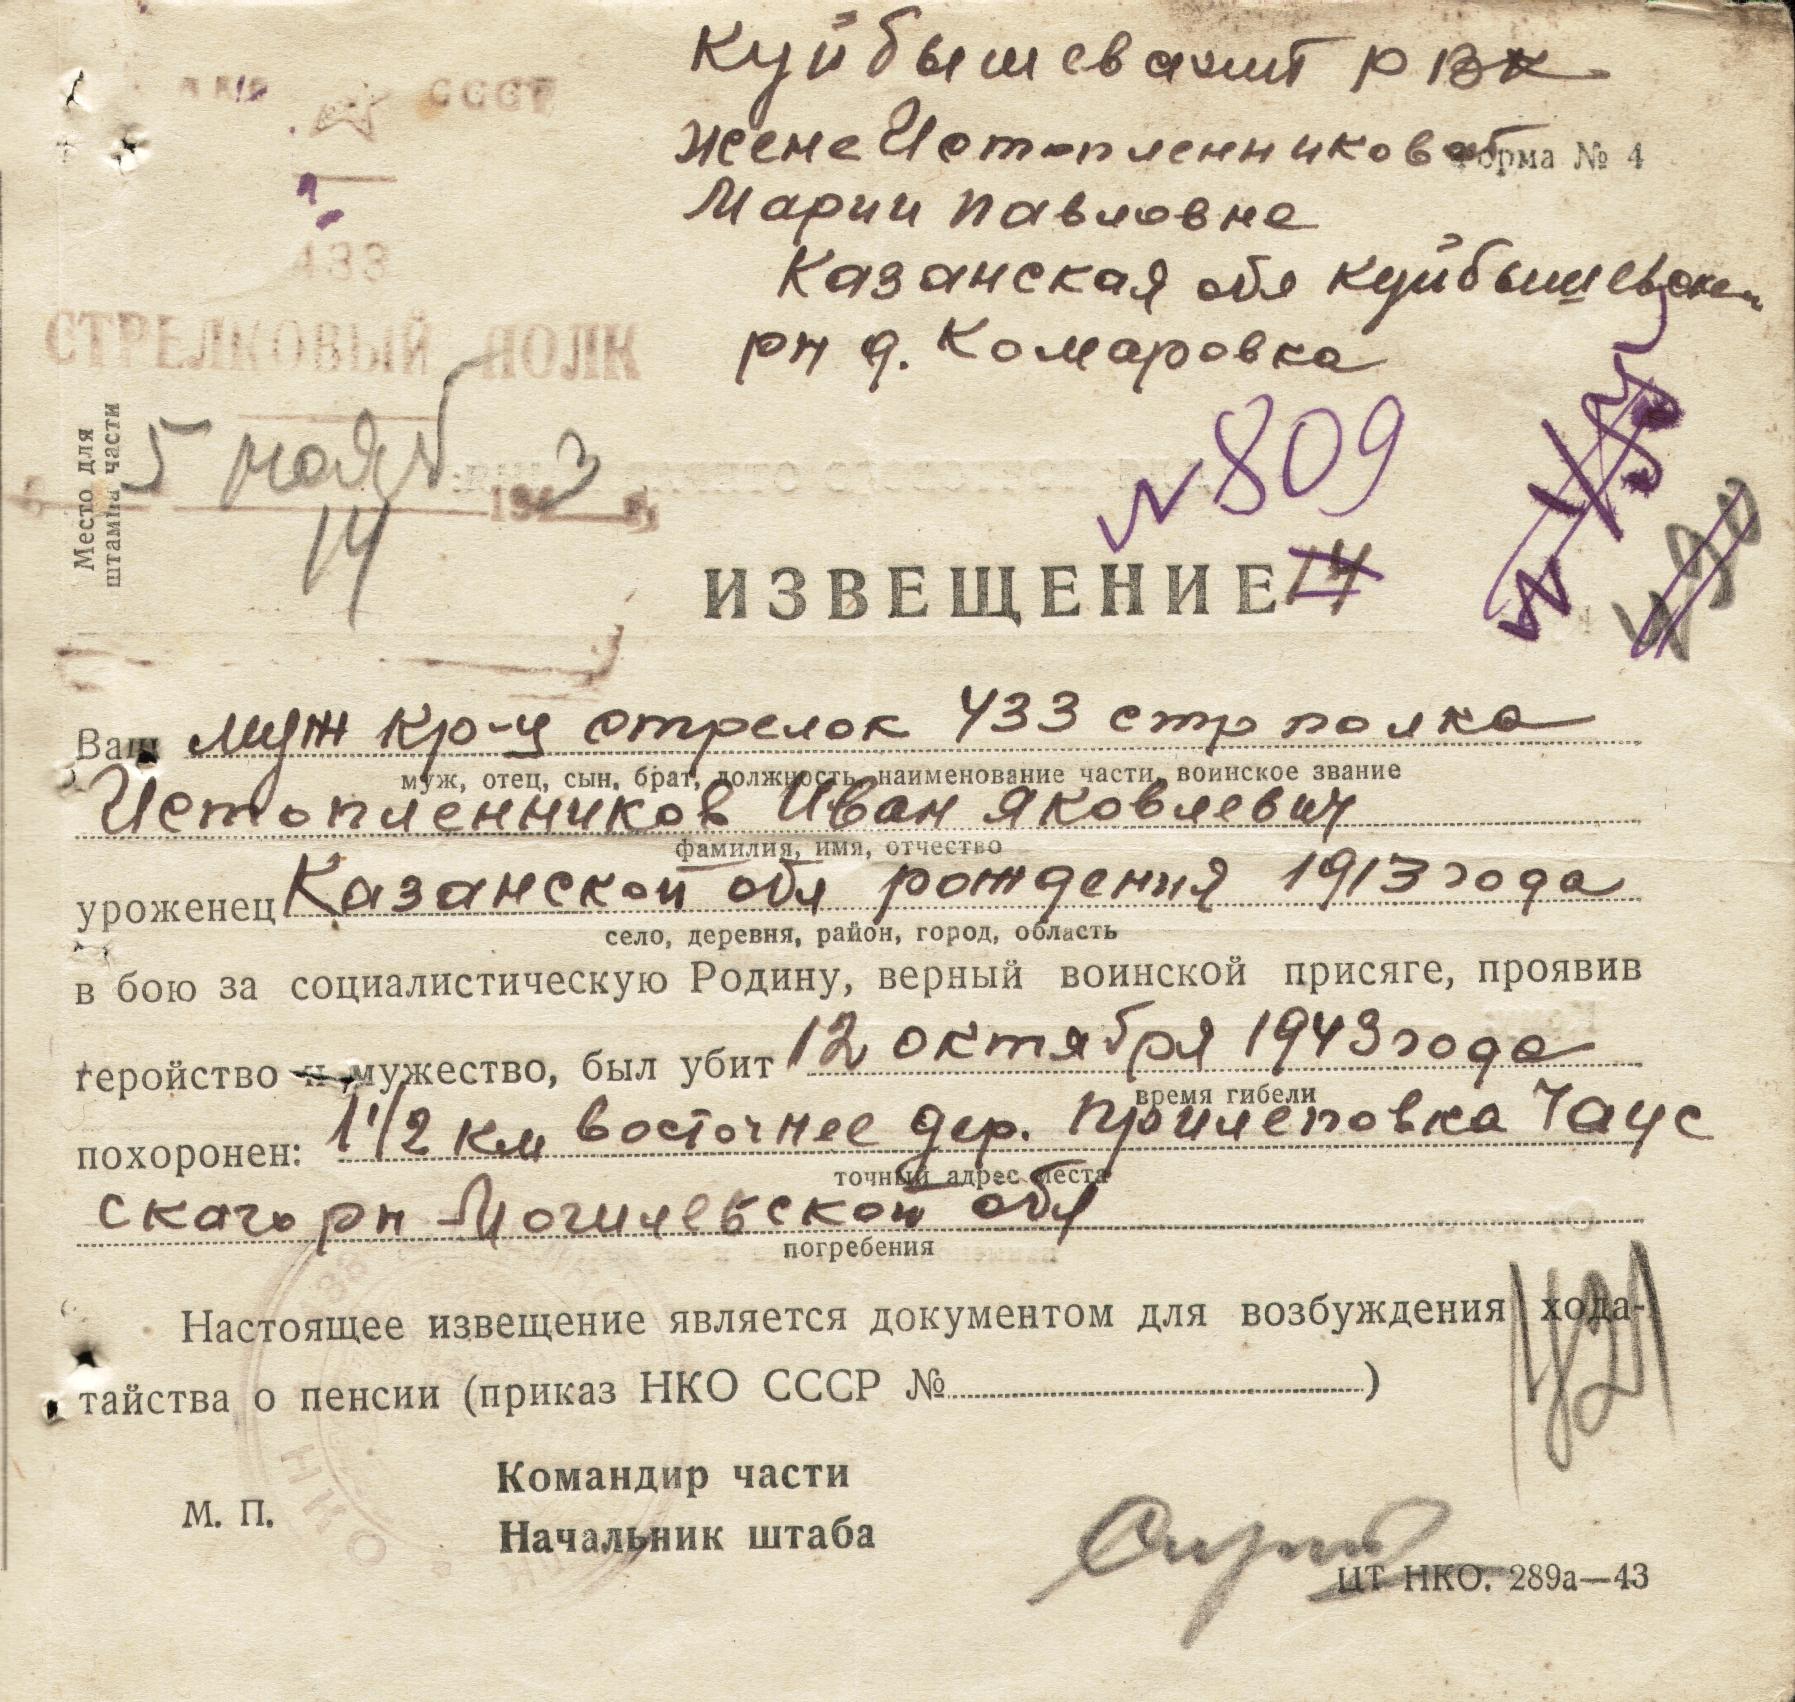 Куйбышевский РВК
жене Истопленниковой
Форма № 4
Марии Павловне
Казанская обл Куйбышевск
рн д. Комаровка
СССР
433
СТРЕЛКОВЫЙ ПОЛК
5 нояб 1943
14
Место для
штампа части
N 809
ИЗВЕЩЕНИЕ 14
Ваш муж кр-ц стрелок 433 стр полка
муж, отец, сын, брат, должность, наименование части, воинское звание
Истопленников Иван Яковлевич
фамилия, имя, отчество
уроженец Казанской обл рождения 1913 года
село, деревня, район, город, область
в бою за социалистическую Родину, верный воинской присяге, проявив
геройство и мужество, был убит 12 октября 1943 года
время гибели
похоронен: 1 1/2 км восточнее дер. Прилеповка Чаус
точный адрес места
скаго рн Могилевской обл
погребения
Настоящее извещение является документом для возбуждения хода-
тайства о пенсии (приказ НКО СССР № )
Командир части
М. П.
Начальник штаба
ЦТ НКО. 289а—43
НКО